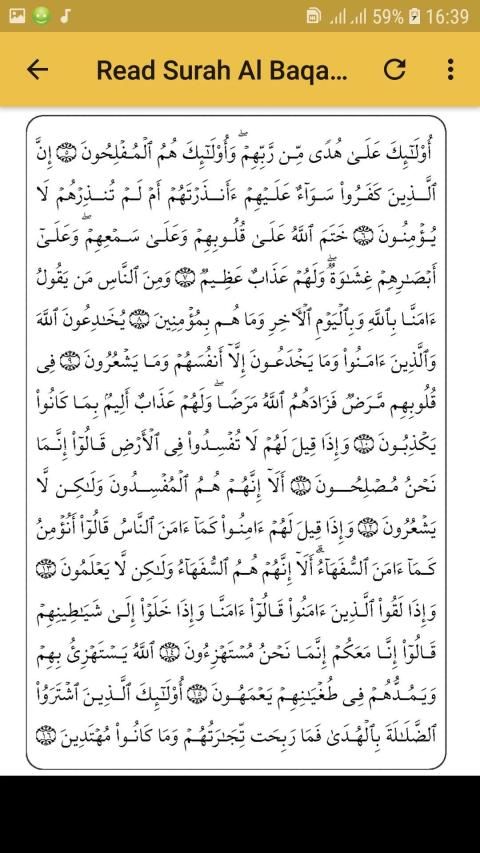 59% 16:39
Read Surah Al Baqa...
أُوْلَـٰٓئِكَ عَلَىٰ هُدًى مِّن رَّبِّهِمْ ۖ وَأُوْلَـٰٓئِكَ هُمُ ٱلْمُفْلِحُونَ ۝٥ إِنَّ
ٱلَّذِينَ كَفَرُوا۟ سَوَآءٌ عَلَيْهِمْ ءَأَنذَرْتَهُمْ أَمْ لَمْ تُنذِرْهُمْ لَا
يُؤْمِنُونَ ۝٦ خَتَمَ ٱللَّهُ عَلَىٰ قُلُوبِهِمْ وَعَلَىٰ سَمْعِهِمْ ۖ وَعَلَىٰٓ
أَبْصَـٰرِهِمْ غِشَـٰوَةٌ ۖ وَلَهُمْ عَذَابٌ عَظِيمٌ ۝٧ وَمِنَ ٱلنَّاسِ مَن يَقُولُ
ءَامَنَّا بِٱللَّهِ وَبِٱلْيَوْمِ ٱلْـَٔاخِرِ وَمَا هُم بِمُؤْمِنِينَ ۝٨ يُخَـٰدِعُونَ ٱللَّهَ
وَٱلَّذِينَ ءَامَنُوا۟ وَمَا يَخْدَعُونَ إِلَّآ أَنفُسَهُمْ وَمَا يَشْعُرُونَ ۝٩ فِى
قُلُوبِهِم مَّرَضٌ فَزَادَهُمُ ٱللَّهُ مَرَضًا ۖ وَلَهُمْ عَذَابٌ أَلِيمٌۢ بِمَا كَانُوا۟
يَكْذِبُونَ ۝١٠ وَإِذَا قِيلَ لَهُمْ لَا تُفْسِدُوا۟ فِى ٱلْأَرْضِ قَالُوٓا۟ إِنَّمَا
نَحْنُ مُصْلِحُونَ ۝١١ أَلَآ إِنَّهُمْ هُمُ ٱلْمُفْسِدُونَ وَلَـٰكِن لَّا
يَشْعُرُونَ ۝١٢ وَإِذَا قِيلَ لَهُمْ ءَامِنُوا۟ كَمَآ ءَامَنَ ٱلنَّاسُ قَالُوٓا۟ أَنُؤْمِنُ
كَمَآ ءَامَنَ ٱلسُّفَهَآءُ ۗ أَلَآ إِنَّهُمْ هُمُ ٱلسُّفَهَآءُ وَلَـٰكِن لَّا يَعْلَمُونَ ۝١٣
وَإِذَا لَقُوا۟ ٱلَّذِينَ ءَامَنُوا۟ قَالُوٓا۟ ءَامَنَّا وَإِذَا خَلَوْا۟ إِلَىٰ شَيَـٰطِينِهِمْ
قَالُوٓا۟ إِنَّا مَعَكُمْ إِنَّمَا نَحْنُ مُسْتَهْزِءُونَ ۝١٤ ٱللَّهُ يَسْتَهْزِئُ بِهِمْ
وَيَمُدُّهُمْ فِى طُغْيَـٰنِهِمْ يَعْمَهُونَ ۝١٥ أُوْلَـٰٓئِكَ ٱلَّذِينَ ٱشْتَرَوُا۟
ٱلضَّلَـٰلَةَ بِٱلْهُدَىٰ فَمَا رَبِحَت تِّجَـٰرَتُهُمْ وَمَا كَانُوا۟ مُهْتَدِينَ ۝١٦